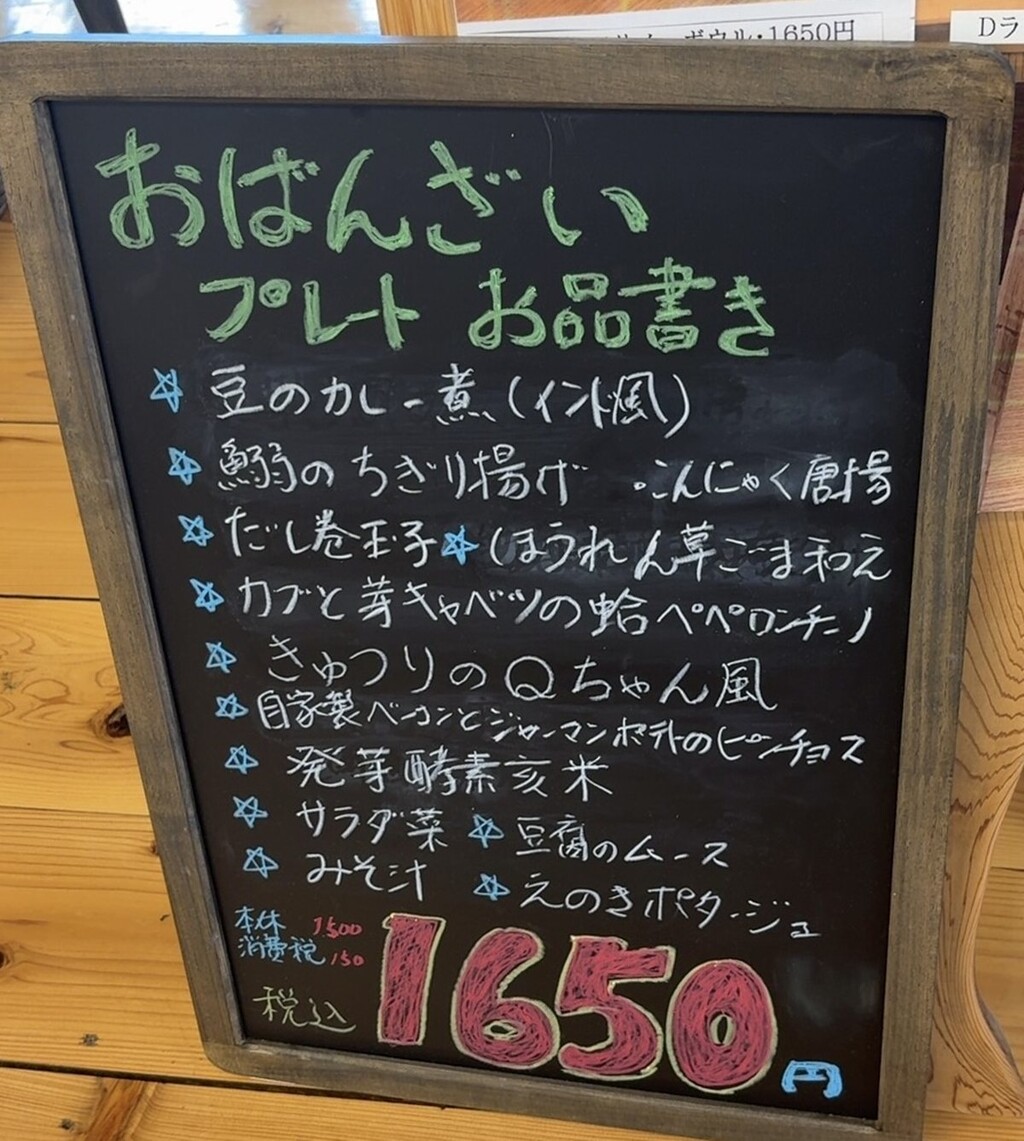 ボウル・1650円
Dラ
おばんざい
プレート お品書き
☆ 豆のカレー煮(インド風)
☆ 鰯のちぎり揚げ ・こんにゃく唐揚
☆ だし巻玉子 ☆ ほうれん草ごま和え
☆ カブと芽キャベツの蛤ペペロンチーノ
☆ きゅうりのQちゃん風
☆ 自家製ベーコンとジャーマンポテトのピンチョス
☆ 発芽酵素玄米
☆ サラダ菜 ☆ 豆腐のムース
☆ みそ汁 ☆ えのきポタージュ
本体 1500
消費税 150
税込 1650円